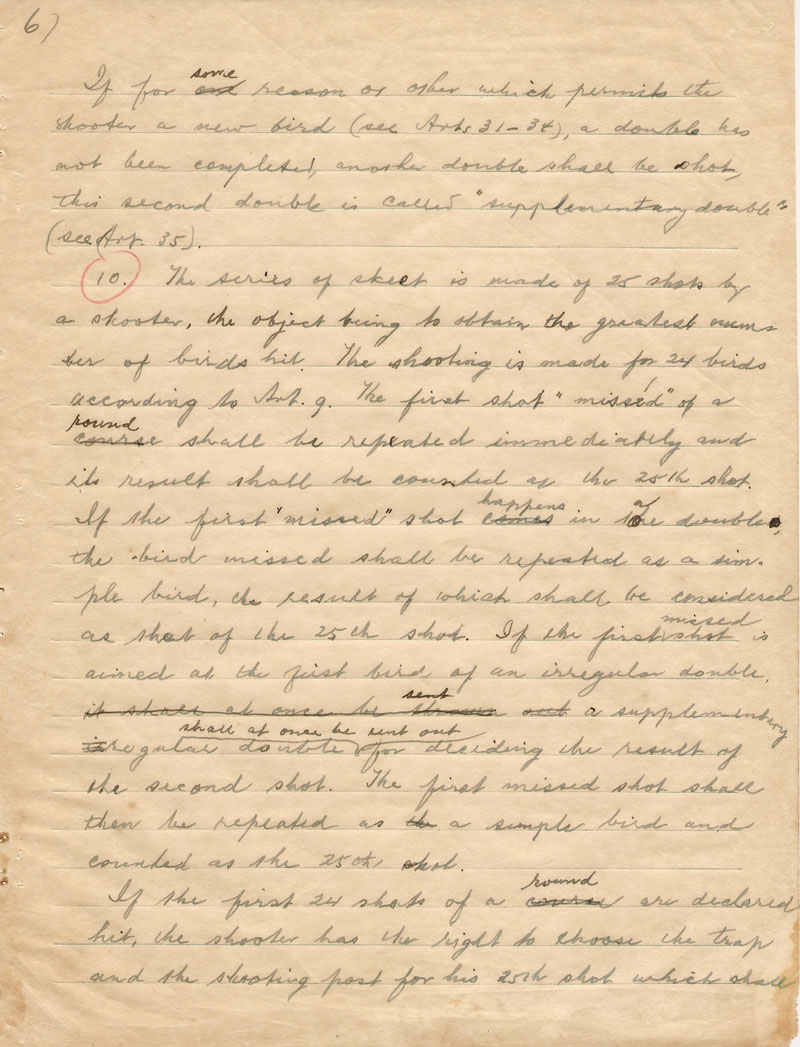 6)
some
If for and reason or other which permits the
shooter a new bird (see Arts 31-34), a double has
not been completed, another double shall be shot,
this second double is called "supplementary double"
(see Art. 35).
10. The series of skeet is made of 25 shots by
a shooter, the object being to obtain the greatest num-
ber of birds hit. The shooting is made for 24 birds
according to Art. 9. The first shot "missed" of a
round
course shall be repeated immediately and
its result shall be counted as the 25th shot.
happens a
If the first "missed" shot comes in the double,
the bird missed shall be repeated as a sim-
ple bird, the result of which shall be considered
missed
as that of the 25th shot. If the first shot is
aimed at the first bird of an irregular double,
sent
it shall at once be thrown out a supplementary
shall at once be sent out
irregular double for deciding the result of
the second shot. The first missed shot shall
then be repeated as the a simple bird and
counted as the 25th shot.
round
If the first 24 shots of a course are declared
hit, the shooter has the right to choose the trap
and the shooting post for his 25th shot which shall